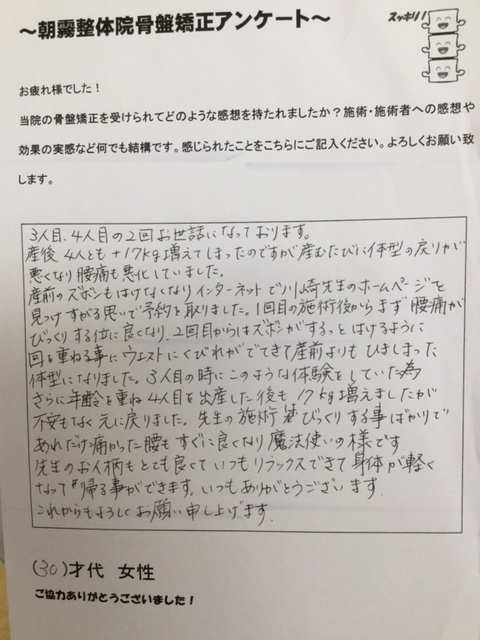 ～朝霧整体院骨盤矯正アンケート～
スッキリ!!
お疲れ様でした！
当院の骨盤矯正を受けられてどのような感想を持たれましたか？施術・施術者への感想や
効果の実感など何でも結構です。感じられたことをこちらにご記入ください。よろしくお願い致
します。
3人目、4人目の2回お世話になっております。
産後4人とも+17kg増えてしまったのですが産むたびに体型の戻りが
悪くなり腰痛も悪化していました。
産前のズボンもはけなくなりインターネットで川崎先生のホームページを
見つけすがる思いで予約を取りました。1回目の施術後からまず腰痛が
びっくりする位に良くなり、2回目からはズボンがするっとはけるように
回を重ねる事にウエストにくびれがでてきて産前よりもひきしまった
体型になりました。3人目の時にこのような体験をしていた為
さらに年齢を重ね4人目を出産した後も17kg増えましたが
不安もなく元に戻りました。先生の施術はびっくりする事ばかりで
あれだけ痛かった腰もすぐに良くなり魔法使いの様です
先生のお人柄もとても良くていつもリラックスできて身体が軽く
なって帰る事ができます。いつもありがとうございます
これからもよろしくお願い申し上げます。
(30)才代 女性
ご協力ありがとうございました！